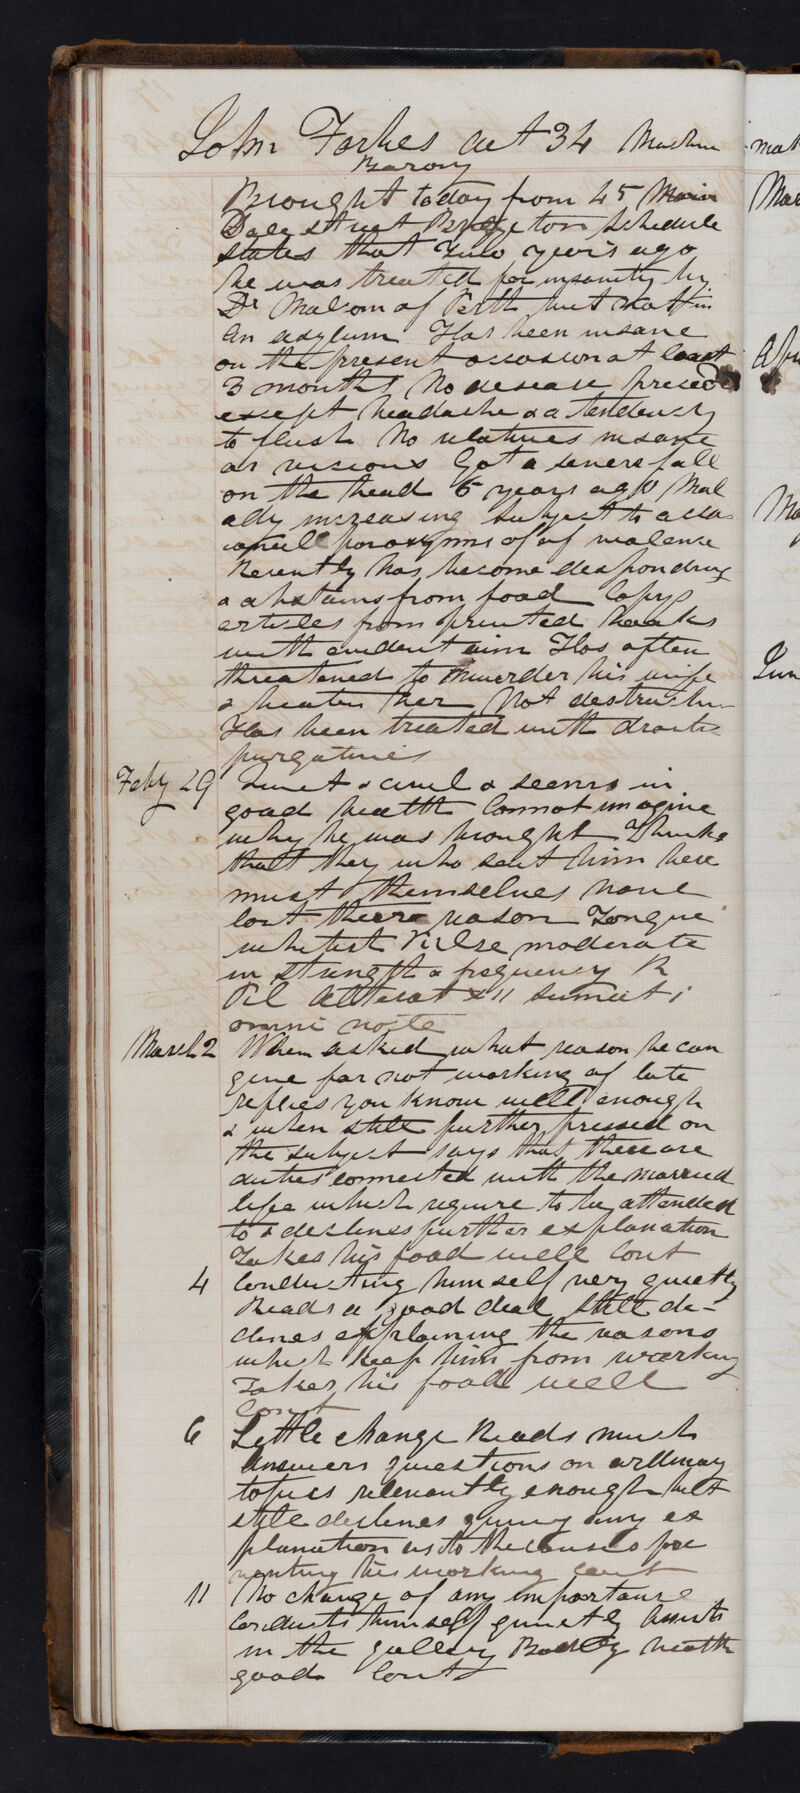 John Forbes aet 34
Barony
Brought today from 45 Main
Dale street Bridgeton Schedule
states that Two years ago
he was treated for insanity by
Dr Malcom of Perth but not in
an asylum Has been insane
on the present occasion at least
3 months No disease preceded
except headache & a tendency
to flush No relatives insane
or vicious Got a severe fall
on the head 6 years ago Mal
ady increasing subject to occas
ional paroxysms of of violence
Recently has become desponding
& abstains from food Copys
articles from printed books
with evident aim Has often
threatened to murder his wife
& beaten her Not destructive
Has been treated with drastic
purgatives
Feby 29 Quiet & civil & seems in
good health Cannot imagine
why he was brought Thinks
that they who sent him here
must themselves have
lost there reason Tongue
whitish Pulse moderate
in strength & frequency R
Pil sumat i
omni nocte
March 2 When asked what reason he can
give for not working of late
replies you know well enough
& when still further pressed on
the subject says that there are
duties connected with the married
life which require to be attended
to & declines further explanation
Takes his food well Cont
4 Conducting himself very quietly
Reads a good deal still de-
clines explaining the reasons
which keep him from working
Takes his food well
Cont
6 Little change Reads much
Answers questions on ordinary
topics relevantly enough but
still declines giving any ex
planation as to the causes pre
venting his working Cont
11 No change of any importance
Conducts himself quietly Assists
in the gallery Bodily health
good Cont